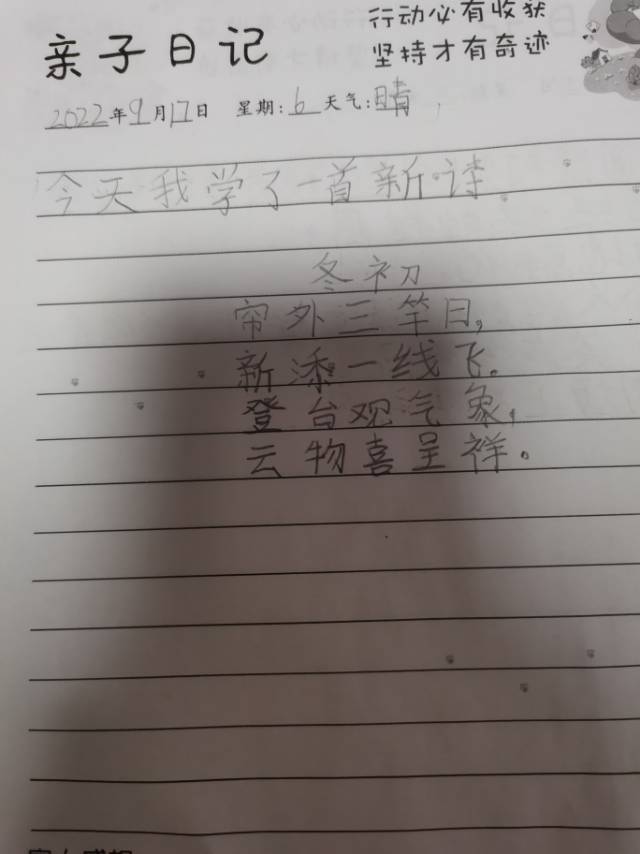 行动必有收获
亲子日记
坚持才有奇迹
2022年9月17日 星期:6天气:晴
今天我学了一首新诗
冬初
帘外三竿日,
新添一线飞。
登台观气象,
云物喜呈祥。